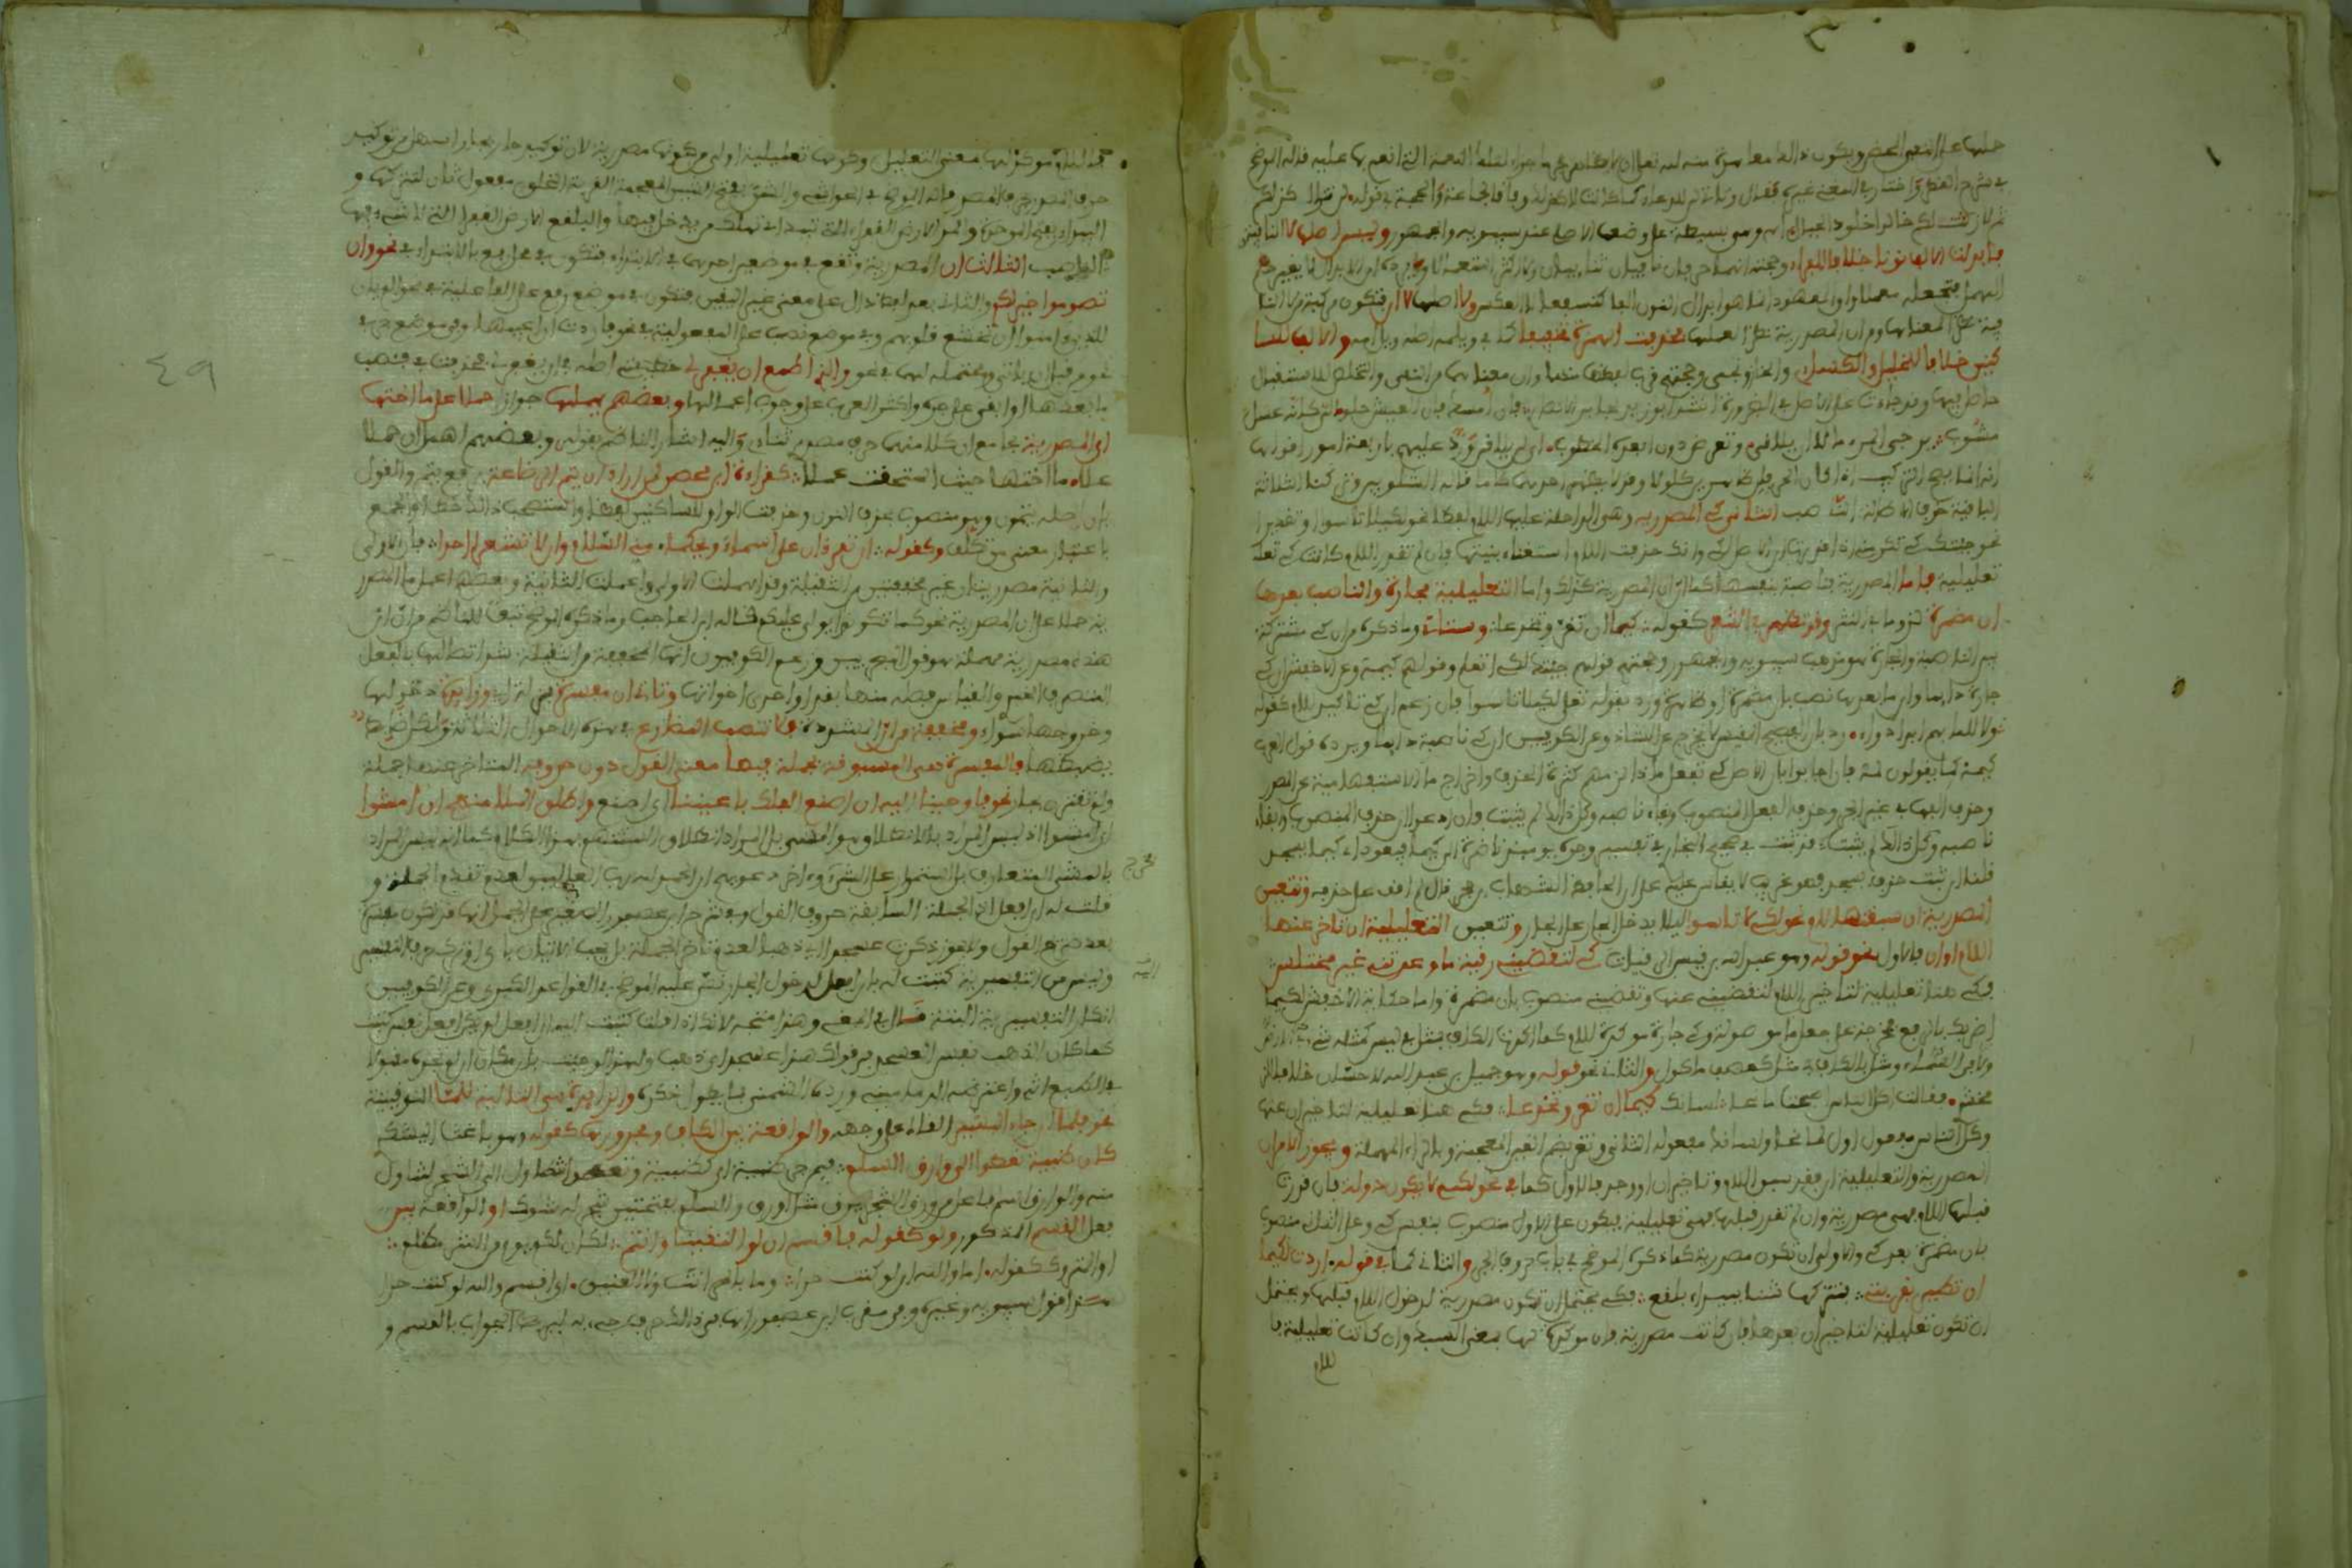 حملها على النفي المحض ويكون ذلك معاهدة منه لله تعالى ان لا يظاهر مجرما جزاء لتلك النعمة التي انعم بها عليه قاله الموضح
في شرح القطر واختار في المغني غيره فقال وتاتي للدعاء كما كانت لا كذلك وفاقا لجماعة والحجة في قوله لن تزالوا كذلكم
ثم لا زلت لكم خالدا خلود الجبال وهي بسيطة على وضعها الاصلي عند سيبويه والجمهور وليس اصلها لا النافية
فابدلت الالف نونا خلافا للفراء وحجته انهما حرفان نافيان ثنائيان
المهمل فيجعله معملا والمعهود انما هو ابدال النون الفا كنسفعا لا العكس ولا اصلها لا ان فتكون مركبة من لا النا
فية نظرا لمعناها ومن ان المصدرية نظرا لعملها فحذفت الهمزة تخفيفا كما في ويلمه اصله ويل امه والالف للسا
كنين خلافا للخليل والكسائي والخارزنجي وحجتهم قرب لفظها منهما وان معناهما من النفي والتخلص للاستقبال
حاصل فيها وقد جاءت على الاصل في الضرورة انشد ابو زيد
يرجي المرء ما لا ان يلاقي وتعرض دون ابعده الخطوب اي لن يلاقي ورد عليهم باربعة امور اقواها
انه انما يصح التركيب اذا كان الحرفان ظاهرين كلولا وقد لا يظهر احدهما كاما قاله الشلوبين وتركنا الثلاثة
الباقية خوف الاطالة الناصب الثاني كي المصدرية وهي الداخلة عليها اللام لفظا نحو لكيلا تاسوا او تقديرا
نحو جئتك كي تكرمني اذا قدرت ان الاصل لكي وانك حذفت اللام استغناء بنيتها فان لم تقدر اللام كانت كي تعلـ
تعليلية فاما المصدرية فناصبة بنفسها كما ان ان المصدرية كذلك واما التعليلية فجارة والناصب بعدها
ان مضمرة لزوما في النثر وقد تظهر في الشعر كقوله كيما ان تغر وتخدعا وستاتي وما ذكره من ان كي مشتركة
بين الناصبة والجارة هو مذهب سيبويه والجمهور وحجتهم قولهم جئت لكي اتعلم وقولهم كيمه وعن الاخفش ان كي
جارة دائما وان ما بعدها نصب بان مضمرة او ظاهرة ورد بقوله تعلى لكيلا تاسوا فان زعم ان كي تاكيد للام كقوله
ولا للما بهم ابدا دواء رد بان الفصيح المقيس لا يخرج على الشاذ وعن الكوفيين ان كي ناصبة دائما ويرده قول العرب
كيمه كما يقولون لمه فان اجابوا بان الاصل كي تفعل ماذا لزمهم كثرة الحذف واخراج ما الاستفهامية عن الصدر
وحذف الفها في غير الجر وحذف الفعل المنصوب وبقاء ناصبه وكل ذلك لم يثبت فان ادعوا ان حذف المنصوب وابقاء
ناصبه وكل ذلك لم يثبت قد ثبت في صحيح البخاري في تفسير وجوه يومئذ ناضرة اي كيما فيعود اي كيما يسجد
قلنا ان ثبت حذف يسجد فهو غريب لا يقاس عليه على ان الحافظ الشهاب بن حجر قال لم اقف على حذفه وتتعين
المصدرية ان سبقتها اللام نحو لكيلا تاسوا ليلا يدخل الجار على الجار وتتعين التعليلية ان تاخر عنها
اللام او ان فالاول نحو قوله وهو عبد الله بن قيس الرقيات كي لتقضيني رقية ما وعدتني غير مختلس
فكي هنا تعليلية لتاخير اللام لتقضيني عنها وتقضيني منصوب بان مضمرة واما حكاية الاخفش لكيما
اضربك بالرفع فخرجت على جعل ما موصولة وكي جارة موكدة للام كما اكدت الكاف بمثل في ليس كمثله شيء
ولا في للما ومثل بالكاف في مثل كعصف ماكول والثاني نحو قوله وهو جميل بن عبد الله لا حسان خلافا للز
مخشري فقالت اكل الناس اصبحت مانحا لسانك كيما ان تغر وتخدعا فكي هنا تعليلية لتاخر ان عنها
وكل الناس مفعول اول لمانحا ولسانك مفعوله الثاني وتغر بضم الغين المعجمة وبالراء المهملة ويجوز الامران
المصدرية والتعليلية ان فقد سبق اللام وتاخير ان او وجد فالاول كما في نحو كي لا يكون دولة فان قدرت
قبلها اللام فهي مصدرية وان لم تقدر قبلها فهي تعليلية فيكون على الاول منصوب بنفس كي وعلى الثاني منصوب
بان مضمرة بعد كي والاولى ان تكون مصدرية كما ذكره الموضح في باب حروف الجر والثاني كما في قوله اردت لكيما
ان تطير بقربتي فتتركها شنا ببيداء بلقع فكي يحتمل ان تكون مصدرية لدخول اللام قبلها ويحتمل
ان تكون تعليلية لتاخير ان بعدها فان كانت مصدرية فان موكدة لها بمعنى السبك وان كانت تعليلية فا
للام
موكدة لها معنى التعليل وكونها تعليلية اولى من كونها مصدرية لان توكيد جار بجار اسهل من توكيد
حرف مصدري بمصدري قاله الموضح في الحواشي والشن بفتح الشين المعجمة القربة الخلق مفعول ثان لتتركها و
البيداء بفتح الموحدة والمد الارض القفراء التي تبيد اي تهلك من يدخل فيها والبلقع الارض القفراء التي لا شيء فيها
الناصب الثالث ان المصدرية وتقع في موضعين احدهما في الابتداء فتكون في محل رفع بالابتداء في نحو وان
تصوموا خير لكم والثاني بعد لفظ دال على معنى غير اليقين فتكون في موضع رفع على الفاعلية في نحو الم يان
للذين امنوا ان تخشع قلوبهم وفي موضع نصب على المفعولية في نحو فاردت ان اعيبها وفي موضع جر في
نحو من قبل ان ياتي ومحتملة لهما في نحو والذي اطمع ان يغفر لي خطيئتي اصله في ان يغفر لي فحذفت في فنصب
ما بعدها او ابقي على جره واكثر العرب على وجوب اعمالها وبعضهم يهملها جوازا حملا على ما اختها
اي المصدرية بجامع ان كلا منهما حرف مصدري ثنائي واليه اشار الناظم بقوله وبعضهم اهمل ان حملا
على ما اختها حيث استحقت عملا كقراءة ابن محيصن لمن اراد ان يتم الرضاعة برفع يتم والقول
بان اصله يتمون وهو منصوب بحذف النون وحذفت الواو للساكنين لفظا واستصحب ذلك خطا والجمع
باعتبار معنى من تكلف وكقوله ان تقرءان على اسماء ويحكما مني السلام وان لا تشعرا احدا فان الاولى
والثانية مصدريتان غير مخففتين من الثقيلة وقد اهملت الاولى واعملت الثانية وبعضهم اعمل ما المصدر
ية حملا على ان المصدرية نحو كما تكونوا يولى عليكم قاله ابن الحاجب وما ذكره الموضح تبعا للناظم من ان ان
هذه مصدرية مهملة هو قول البصريين وزعم الكوفيون انها المخففة من الثقيلة شذ اتصالها بالفعل
المتصرف الخبر والقياس فصله منها بقد او احدى اخواتها وتاتي ان مفسرة بمنزلة اي وزايدة دخولها
وخروجها سواء ومخففة من ان المشددة فلا تنصب المضارع في هذه الاحوال الثلاثة ولكل ضابط
يضبطها فالمفسرة هي المسبوقة بجملة فيها معنى القول دون حروفه المتاخر عنها جملة
ولم تقترن بجار نحو فاوحينا اليه ان اصنع الفلك باعيننا اي اصنع وانطلق الملا منهم ان امشوا
اي امشوا اذ ليس المراد بالانطلاق هو المشي بل المراد انطلاق السنتهم بهذا الكلام كما انه ليس المراد
بالمشي المتعارف بل الاستمرار على الشيء وآخر دعواهم ان الحمد لله رب العالمين لعدم تقدم الجملة و
قلت له ان افعل لان الجملة السابقة حروف القول
بعد صريح القول ولا نحو ذكرت عسجدا ان ذهبا لعدم تاخر الجملة بل يجب الاتيان باي او ترك حرف التفسير
وليس من التفسيرية كتبت له بان افعل لدخول الجار نبه عليه الموضح في القواعد الكبرى وعن الكوفيين
انكار التفسيرية البتة قال في المغني وهذا متجه لانك اذا قلت كتبت اليه ان افعل لم يكن افعل نفس كتبت
كما كان الذهب نفس العسجد في قولك هذا عسجد اي ذهب ولهذا لو جئت باي مكان ان لم تجده مقبولا
في الطبع انتهى واعترضه الدماميني ورده الشمني بما يطول ذكره والزايدة هي التالية للما التوقيتية
نحو فلما ان جاء البشير القاه على وجهه والواقعة بين الكاف ومجرورها كقوله وهو باغث اليشكري
كان ظبية تعطوا الى وارق السلم فيمن جر ظبية اي كظبية وتعطو تتطاول الى الشجر لتناول
منه والوارق اسم فاعل من ورق الشجر يرق مثل اورق والسلم بفتحتين شجر له شوك او الواقعة بين
فعل القسم المذكور ولو كقوله فاقسم ان لو التقينا وانتم لكان لكم يوم من الشر مظلم
او المتروك كقوله اما والله ان لو كنت حرا وما بالحر انت ولا العتيق اي اقسم والله لو كنت حرا
هذا قول سيبويه وغيره وفي مقرب ابن عصفور انها في ذلك حرف جيء به لربط الجواب بالقسم و
٤٩